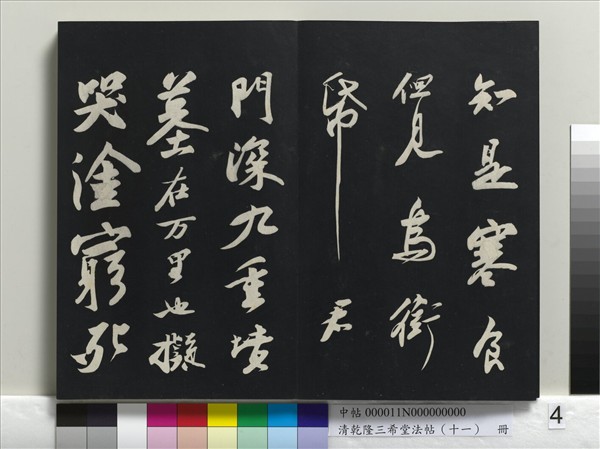 知是寒食
但見烏銜
帋君
門深九重墳
墓在万里也擬
哭塗窮死
中帖 000011N000000000
清乾隆三希堂法帖（十一） 冊
4